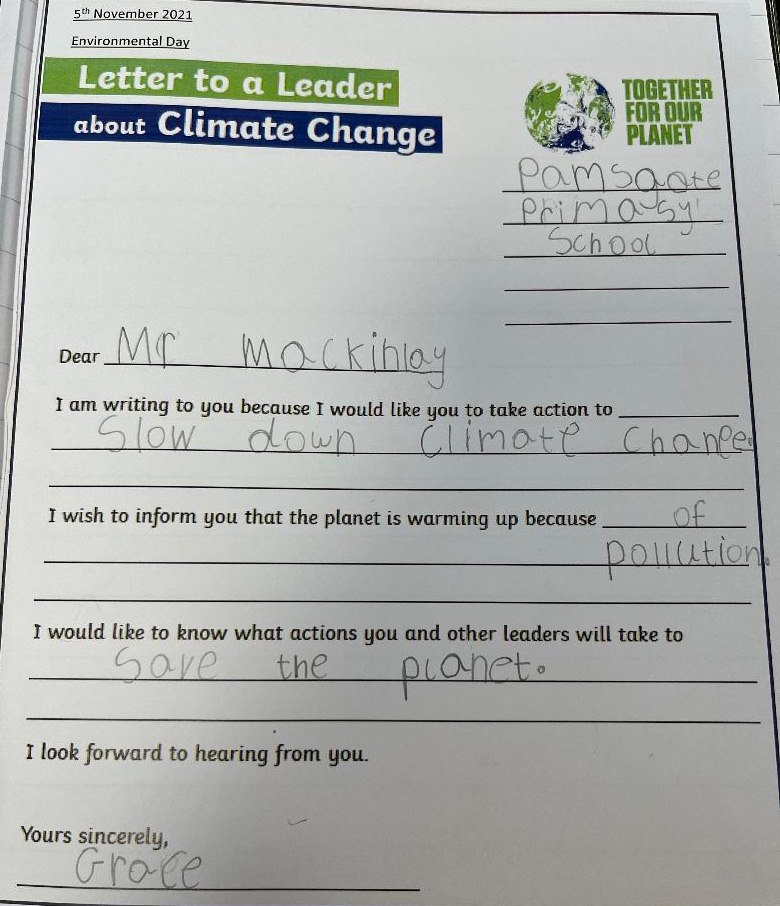 5th November 2021
Environmental Day
Letter to a Leader
about Climate Change
TOGETHER
FOR OUR
PLANET
Pamsgate
primary
School
Dear Mr Mackinlay
I am writing to you because I would like you to take action to
Slow down Climate Change.
I wish to inform you that the planet is warming up because of
pollution.
I would like to know what actions you and other leaders will take to
Save the planet.
I look forward to hearing from you.
Yours sincerely,
Grace